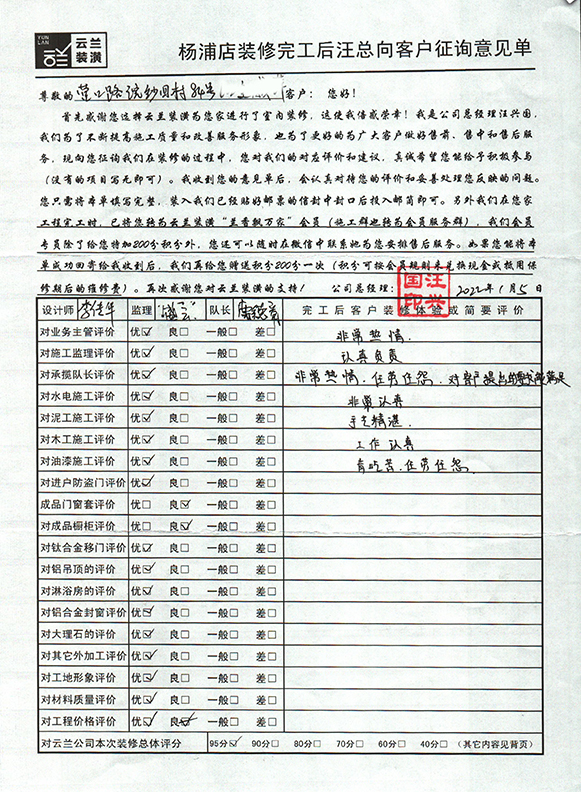 YUN LAN 云兰装潢
杨浦店装修完工后汪总向客户征询意见单
尊敬的 营口路 村84号 客户： 您好！
首先感谢您选择云兰装潢为您家进行了室内装修，这使我倍感荣幸！我是公司总经理汪兴国，
我们为了不断提高施工质量和改善服务形象，也为了更好的为广大客户做好售前、售中和售后服
务，现向您征询我们在装修的过程中，您对我们的对应评价和建议，真诚希望您能给予积极参与
（没有的项目写无即可）。我收到您的意见单后，会认真对待您的评价和妥善处理您反映的问题。
您只需将本单填写完整，装入我们已经贴好邮票的信封中封口后投入邮筒即可。另外我们在您家
工程完工时，已将您转为云兰装潢“兰香飘万家”会员（施工群也转为会员服务群），我们会员
专员除了给您特加200分积分外，您还可以随时在微信中联系她为您安排售后服务。如果您能将本
单成功回寄给我收到后，我们再给您赠送积分200分一次（积分可按会员规则来兑换现金或抵用保
修期后的维修费）。再次感谢您对云兰装潢的支持！ 公司总经理： 汪兴国印 2022年1月5日
设计师 李佳华 监理 队长 完工后客户装修体验或简要评价
对业务主管评价 优☑ 良□ 一般□ 差□ 非常热情.
对施工监理评价 优☑ 良□ 一般□ 差□ 认真负责
对承揽队长评价 优☑ 良□ 一般□ 差□ 非常热情.任劳任怨.对客户提出的要求都满足
对水电施工评价 优☑ 良□ 一般□ 差□ 非常认真
对泥工施工评价 优☑ 良□ 一般□ 差□ 手艺精湛.
对木工施工评价 优☑ 良□ 一般□ 差□ 工作认真
对油漆施工评价 优☑ 良□ 一般□ 差□ 肯吃苦.任劳任怨.
对进户防盗门评价 优☑ 良□ 一般□ 差□
成品门窗套评价 优□ 良☑ 一般□ 差□
对成品橱柜评价 优□ 良☑ 一般□ 差□
对钛合金移门评价 优☑ 良□ 一般□ 差□
对铝吊顶的评价 优☑ 良□ 一般□ 差□
对淋浴房的评价 优☑ 良□ 一般□ 差□
对铝合金封窗评价 优☑ 良□ 一般□ 差□
对大理石的评价 优☑ 良□ 一般□ 差□
对其它外加工评价 优☑ 良□ 一般□ 差□
对工地形象评价 优☑ 良□ 一般□ 差□
对材料质量评价 优☑ 良□ 一般□ 差□
对工程价格评价 优☑ 良☑ 一般□ 差□
对云兰公司本次装修总体评分 95分☑ 90分□ 80分□ 70分□ 60分□ 40分□ （其它内容见背页）